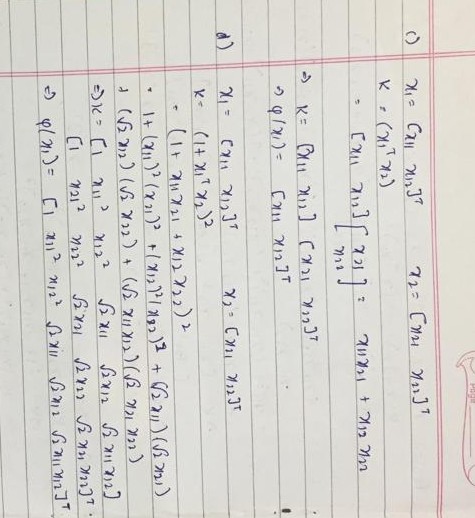 Page
c) x₁ = [x₁₁ x₁₂]ᵀ x₂ = [x₂₁ x₂₂]ᵀ
K = (x₁ᵀ x₂)
= [x₁₁ x₁₂] [x₂₁ x₂₂] = x₁₁x₂₁ + x₁₂ x₂₂
⇒ K = [x₁₁ x₁₂] [x₂₁ x₂₂]ᵀ
⇒ φ(x₁) = [x₁₁ x₁₂]ᵀ
d) x₁ = [x₁₁ x₁₂]ᵀ x₂ = [x₂₁ x₂₂]ᵀ
K = (1 + x₁ᵀ x₂)²
= (1 + x₁₁x₂₁ + x₁₂ x₂₂)²
= 1 + (x₁₁)² (x₂₁)² + (x₁₂)² (x₂₂)² + (√2 x₁₁) (√2 x₂₁)
+ (√2 x₁₂) (√2 x₂₂) + (√2 x₁₁ x₁₂) (√2 x₂₁ x₂₂)
⇒ K = [1 x₁₁² x₁₂² √2 x₁₁ √2 x₁₂ √2 x₁₁ x₁₂]
[1 x₂₁² x₂₂² √2 x₂₁ √2 x₂₂ √2 x₂₁ x₂₂]ᵀ
⇒ φ(x₁) = [1 x₁₁² x₁₂² √2 x₁₁ √2 x₁₂ √2 x₁₁ x₁₂]ᵀ